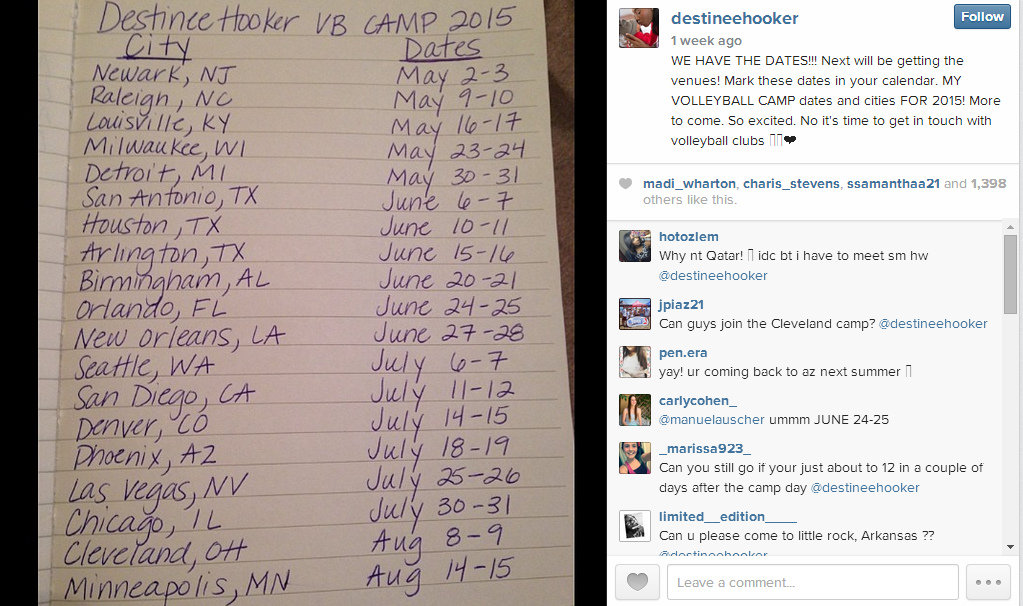 Destinee Hooker VB CAMP 2015
City Dates
Newark, NJ May 2-3
Raleigh, NC May 9-10
Louisville, KY May 16-17
Milwaukee, WI May 23-24
Detroit, MI May 30-31
San Antonio, TX June 6-7
Houston, TX June 10-11
Arlington, TX June 15-16
Birmingham, AL June 20-21
Orlando, FL June 24-25
New Orleans, LA June 27-28
Seattle, WA July 6-7
San Diego, CA July 11-12
Denver, CO July 14-15
Phoenix, AZ July 18-19
Las Vegas, NV July 25-26
Chicago, IL July 30-31
Cleveland, OH Aug 8-9
Minneapolis, MN Aug 14-15
destineehooker
Follow
1 week ago
WE HAVE THE DATES!!! Next will be getting the
venues! Mark these dates in your calendar. MY
VOLLEYBALL CAMP dates and cities FOR 2015! More
to come. So excited. No it's time to get in touch with
volleyball clubs ▯▯❤
madi_wharton, charis_stevens, ssamanthaa21 and 1,398
others like this.
hotozlem
Why nt Qatar! ▯ idc bt i have to meet sm hw
@destineehooker
jpiaz21
Can guys join the Cleveland camp? @destineehooker
pen.era
yay! ur coming back to az next summer ▯
carlycohen_
@manuelauscher ummm JUNE 24-25
_marissa923_
Can you still go if your just about to 12 in a couple of
days after the camp day @destineehooker
limited__edition____
Can u please come to little rock, Arkansas ??
@destineehooker
Leave a comment...